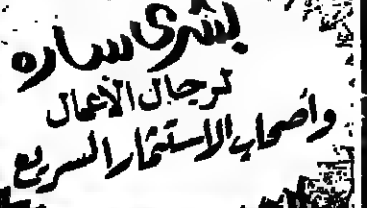 بشرى ساره
لرجال الأعمال
وأصحاب الاستثمار السريع